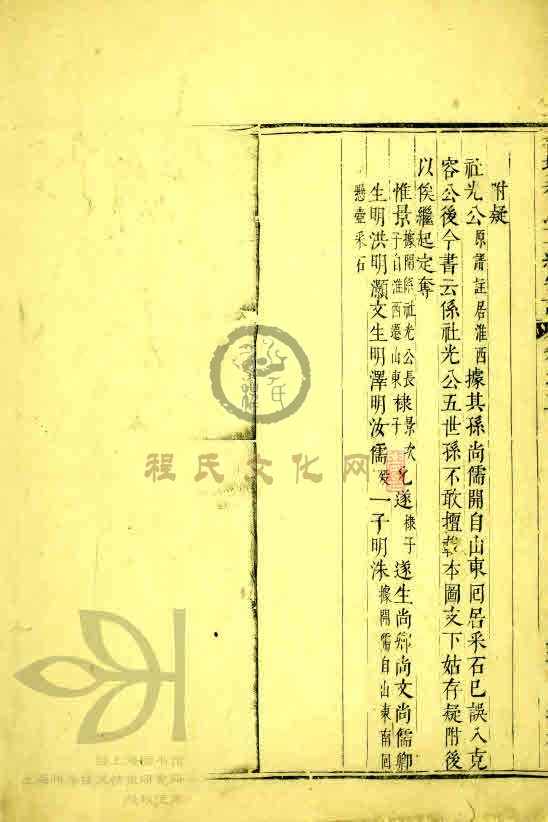 附疑
社光公原譜註居淮西據其孫尚儒開自山東囘居采石已誤入克
容公後今書云係社光公五世孫不敢擅本圖支下姑存疑附後
以俟繼起定奪
惟景據開係社光公長子自淮西遷山東棣景次子允遂棣子遂生尚卿尚文尚儒卿
生明洪明灝文生明澤明汝儒發一子明洙據開儒自山東南囘
懸壺采石
程氏文化网